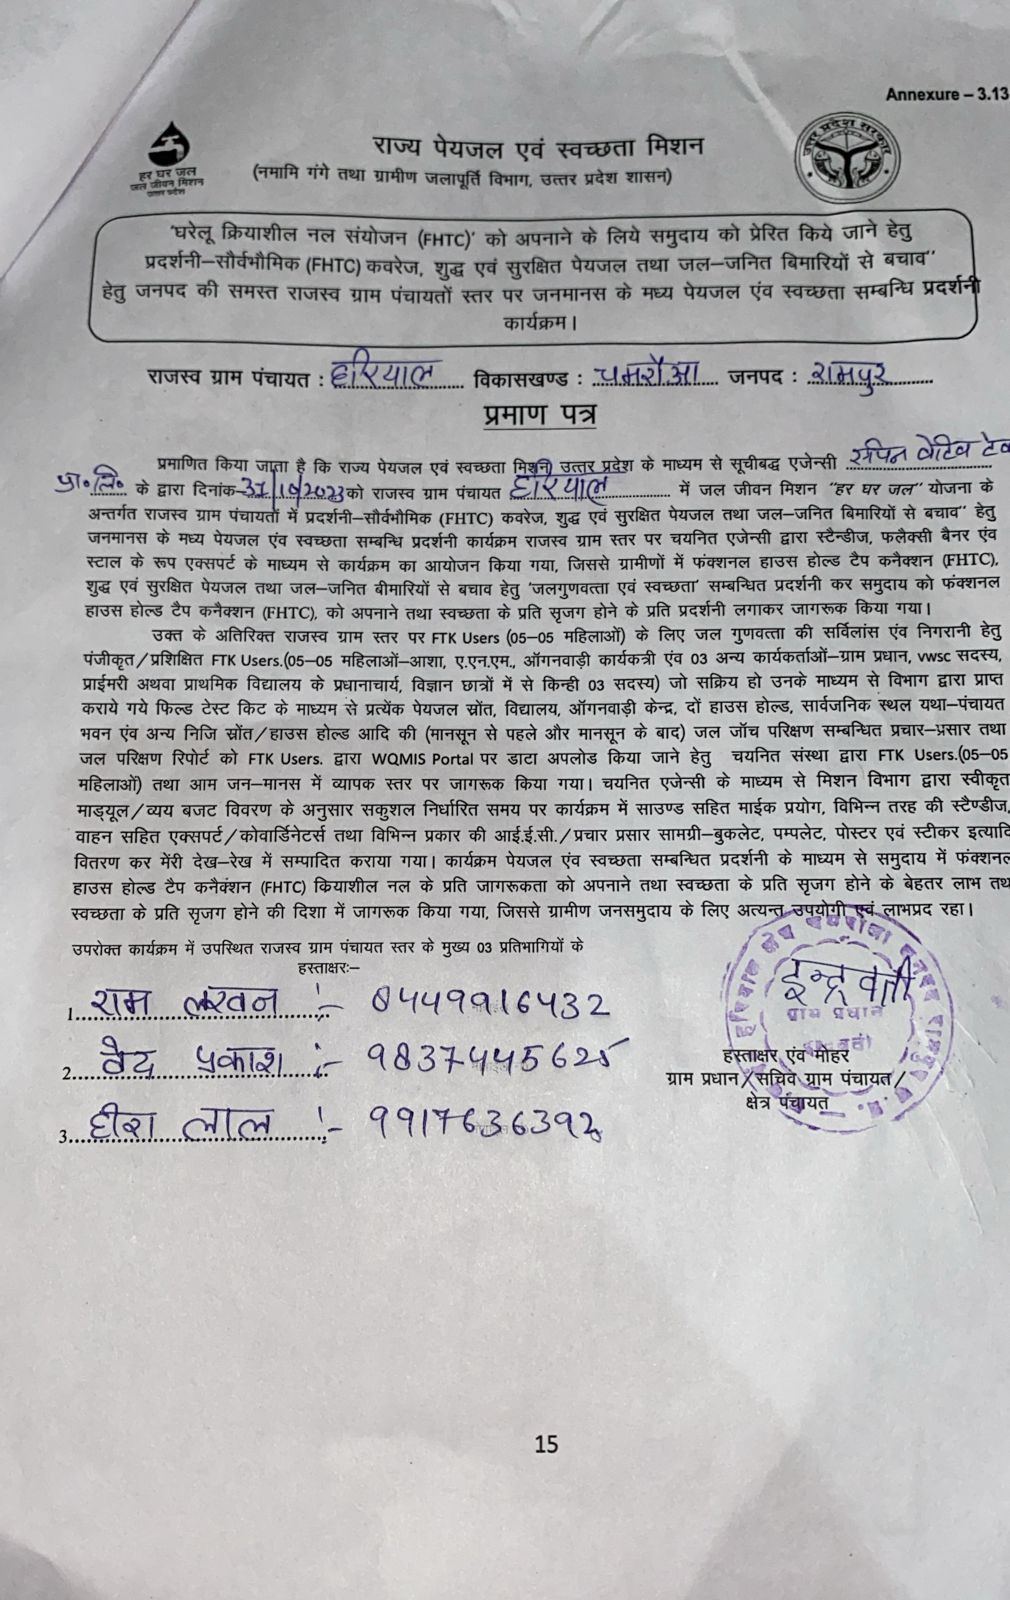 Annexure – 3.13
हर घर जल
जल जीवन मिशन
उत्तर प्रदेश
उत्तर प्रदेश सरकार
राज्य पेयजल एवं स्वच्छता मिशन
(नमामि गंगे तथा ग्रामीण जलापूर्ति विभाग, उत्तर प्रदेश शासन)
'घरेलू क्रियाशील नल संयोजन (FHTC)' को अपनाने के लिये समुदाय को प्रेरित किये जाने हेतु
प्रदर्शनी–सौर्वभौमिक (FHTC) कवरेज, शुद्ध एवं सुरक्षित पेयजल तथा जल–जनित बिमारियों से बचाव''
हेतु जनपद की समस्त राजस्व ग्राम पंचायतों स्तर पर जनमानस के मध्य पेयजल एंव स्वच्छता सम्बन्धि प्रदर्शनी
कार्यक्रम।
राजस्व ग्राम पंचायत : हरियाल विकासखण्ड : चमरौआ जनपद : रामपुर
प्रमाण पत्र
प्रमाणित किया जाता है कि राज्य पेयजल एवं स्वच्छता मिशन, उत्तर प्रदेश के माध्यम से सूचीबद्ध एजेन्सी
प्रा॰ लि॰ के द्वारा दिनांक 31/10/2023 को राजस्व ग्राम पंचायत हरियाल में जल जीवन मिशन "हर घर जल" योजना के
अन्तर्गत राजस्व ग्राम पंचायतों में प्रदर्शनी–सौर्वभौमिक (FHTC) कवरेज, शुद्ध एवं सुरक्षित पेयजल तथा जल–जनित बिमारियों से बचाव" हेतु
जनमानस के मध्य पेयजल एंव स्वच्छता सम्बन्धि प्रदर्शनी कार्यक्रम राजस्व ग्राम स्तर पर चयनित एजेन्सी द्वारा स्टैन्डीज, फलैक्सी बैनर एंव
स्टाल के रूप एक्सपर्ट के माध्यम से कार्यक्रम का आयोजन किया गया, जिससे ग्रामीनों में फंक्शनल हाउस होल्ड टैप कनैक्शन (FHTC),
शुद्ध एवं सुरक्षित पेयजल तथा जल–जनित बीमारियों से बचाव हेतु 'जलगुणवत्ता एवं स्वच्छता' सम्बन्धित प्रदर्शनी कर समुदाय को फंक्शनल
हाउस होल्ड टैप कनैक्शन (FHTC), को अपनाने तथा स्वच्छता के प्रति सृजग होने के प्रति प्रदर्शनी लगाकर जागरूक किया गया।
उक्त के अतिरिक्त राजस्व ग्राम स्तर पर FTK Users (05–05 महिलाओं) के लिए जल गुणवत्ता की सर्विलांस एंव निगरानी हेतु
पंजीकृत/प्रशिक्षित FTK Users.(05–05 महिलाओं–आशा, ए.एन.एम., ऑगनवाड़ी कार्यकत्री एंव 03 अन्य कार्यकर्ताओं–ग्राम प्रधान, vwsc सदस्य,
प्राईमरी अथवा प्राथमिक विद्यालय के प्रधानाचार्य, विज्ञान छात्रों में से किन्ही 03 सदस्य) जो सक्रिय हो उनके माध्यम से विभाग द्वारा प्राप्त
कराये गये फिल्ड टेस्ट किट के माध्यम से प्रत्येंक पेयजल स्रोंत, विद्यालय, ऑगनवाड़ी केन्द्र, दों हाउस होल्ड, सार्वजनिक स्थल यथा–पंचायत
भवन एंव अन्य निजि स्रोंत/हाउस होल्ड आदि की (मानसून से पहले और मानसून के बाद) जल जॉच परिक्षण सम्बन्धित प्रचार–प्रसार तथा
जल परिक्षण रिपोर्ट को FTK Users. द्वारा WQMIS Portal पर डाटा अपलोड किया जाने हेतु चयनित संस्था द्वारा FTK Users.(05–05
महिलाओं) तथा आम जन–मानस में व्यापक स्तर पर जागरूक किया गया। चयनित एजेन्सी के माध्यम से मिशन विभाग द्वारा स्वीकृत
माड्यूल/व्यय बजट विवरण के अनुसार सकुशल निर्धारित समय पर कार्यक्रम में साउण्ड सहित माईक प्रयोग, विभिन्न तरह की स्टैण्डीज,
वाहन सहित एक्सपर्ट/कोवार्डिनेटर्स तथा विभिन्न प्रकार की आई.ई.सी./प्रचार प्रसार सामग्री–बुकलेट, पम्पलेट, पोस्टर एवं स्टीकर इत्यादि
वितरण कर मेंरी देख–रेख में सम्पादित कराया गया। कार्यक्रम पेयजल एंव स्वच्छता सम्बन्धित प्रदर्शनी के माध्यम से समुदाय में फंक्शनल
हाउस होल्ड टैप कनैक्शन (FHTC) कियाशील नल के प्रति जागरूकता को अपनाने तथा स्वच्छता के प्रति सृजग होने के बेहतर लाभ तथ
स्वच्छता के प्रति सृजग होने की दिशा में जागरूक किया गया, जिससे ग्रामीण जनसमुदाय के लिए अत्यन्त उपयोगी एवं लाभप्रद रहा।
उपरोक्त कार्यक्रम में उपस्थित राजस्व ग्राम पंचायत स्तर के मुख्य 03 प्रतिभागियों के
हस्ताक्षरः–
1. राम लखन :- 8449916432
2. वेद प्रकाश :- 9837445625
3. हीरा लाल :- 9917636392
इन्द्रवती
ग्राम प्रधान
हस्ताक्षर एंव मोहर
ग्राम प्रधान/सचिव ग्राम पंचायत/
क्षेत्र पंचायत
15